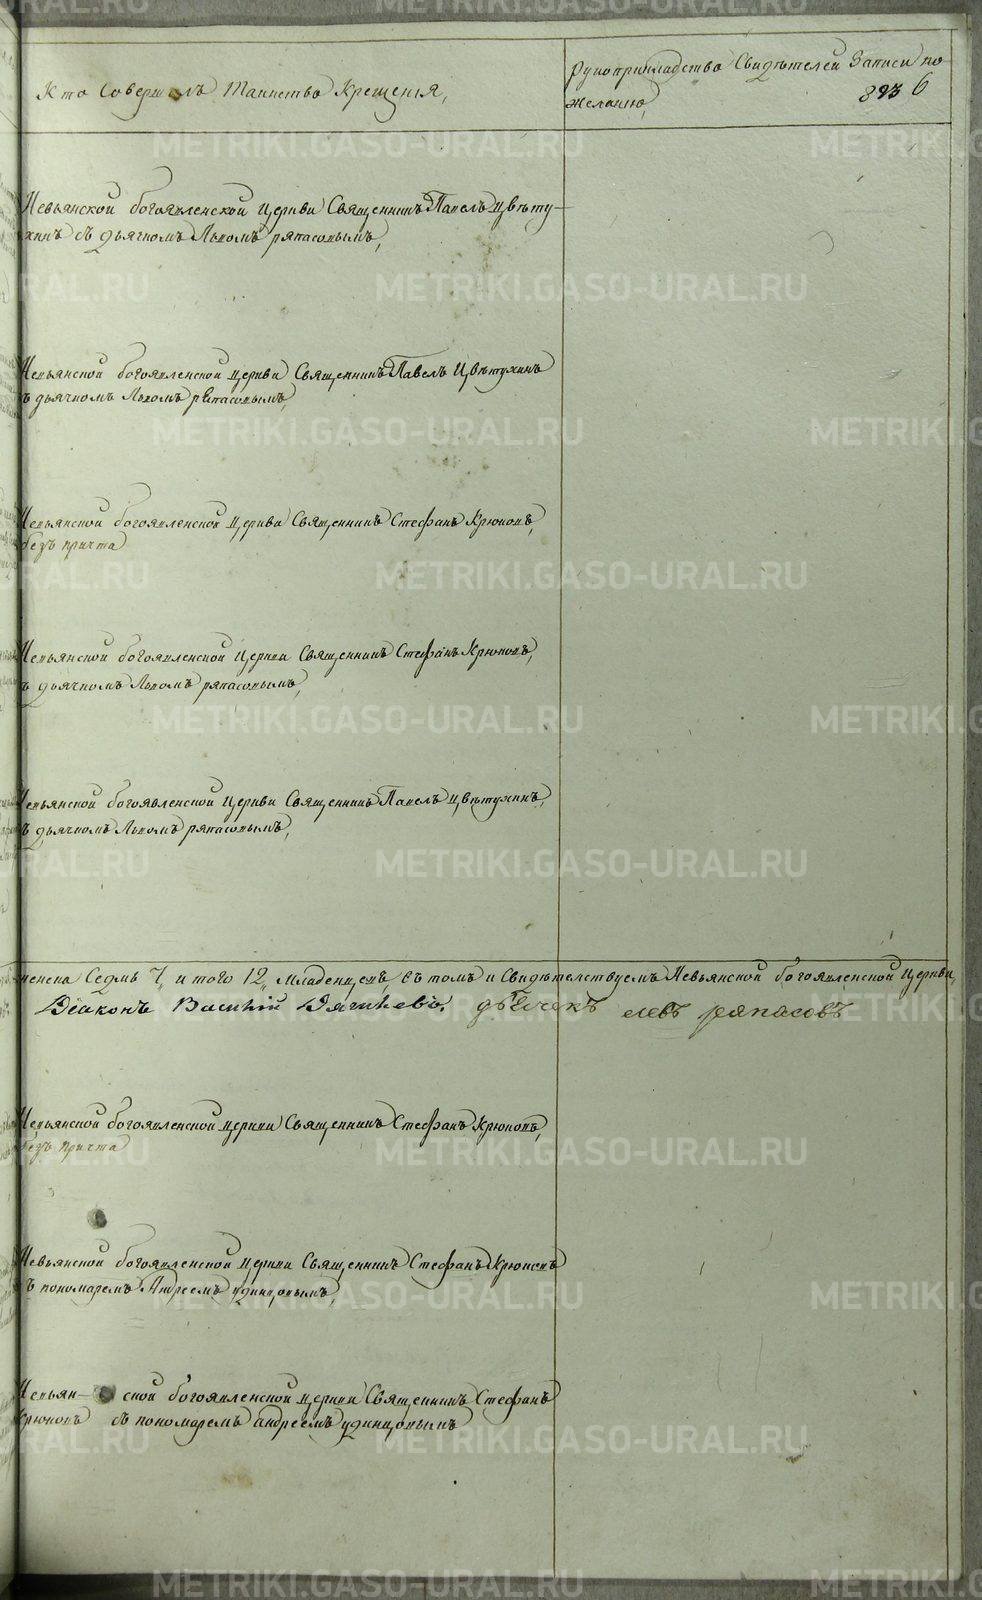 Кто Совершилъ Таинство Крещенія,
Рукоприкладство Свидѣтелей Записи по
желанію,
893 6
Невьянской богоявленской церкви Священникъ Павелъ Цвѣту-
хинъ съ дьячкомъ Львомъ ряпасовымъ,
Невьянской богоявленской церкви Священникъ Павелъ Цвѣтухинъ
съ дьячкомъ Львомъ ряпасовымъ,
Невьянской богоявленской церкви Священникъ Стефанъ Крюковъ,
безъ причта
Невьянской богоявленской церкви Священникъ Стефанъ Крюковъ,
съ дьячкомъ Львомъ ряпасовымъ,
Невьянской богоявленской церкви Священникъ Павелъ цвѣтухинъ,
съ дьячкомъ Львомъ ряпасовымъ,
женска Седмь 7, и того 12, младенцевъ, въ томъ и Свидѣтельствуемъ Невьянской богоявленской церкви
Діаконъ Василій дьячекъ левъ ряпасовъ
Невьянской богоявленской церкви Священникъ Стефанъ Крюковъ,
безъ причта
Невьянской богоявленской церкви Священникъ Стефанъ Крюковъ
съ пономаремъ Андреемъ удинцовымъ,
Невьян- ской богоявленской церкви Священникъ Стефанъ
Крюковъ съ пономаремъ андреемъ удинцовымъ
METRIKI.GASO-URAL.RU